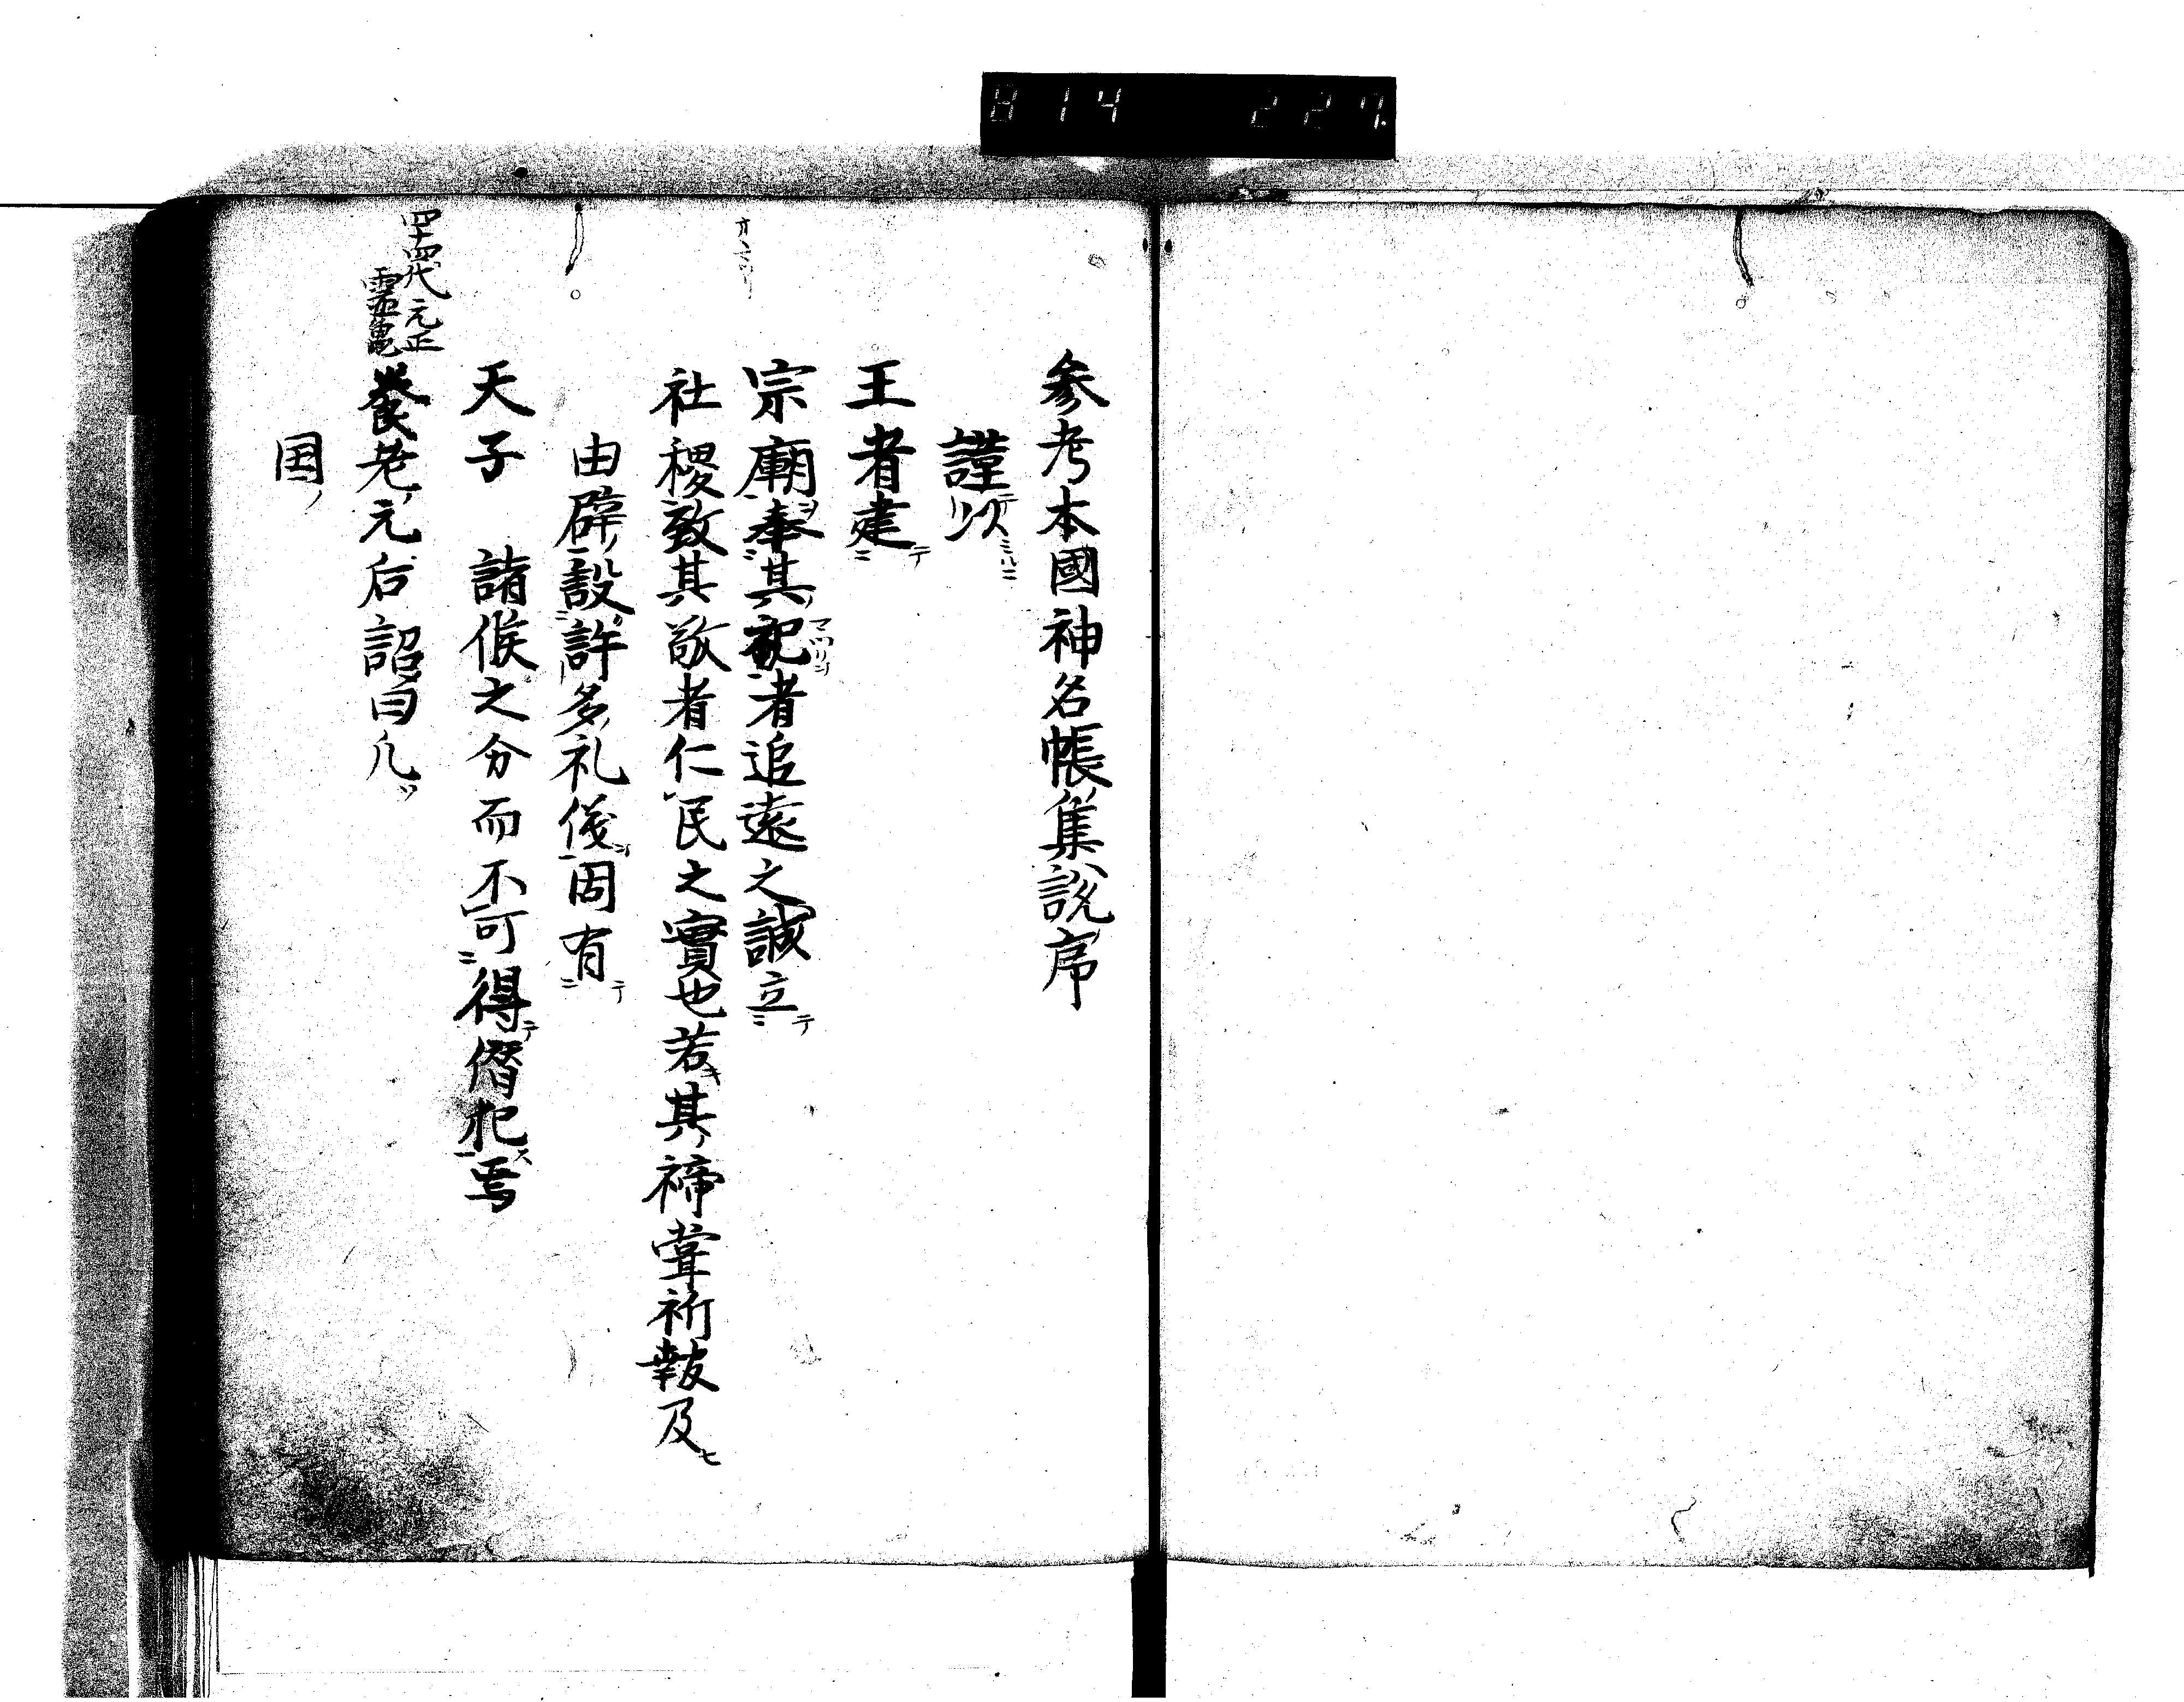 814 227
参考本國神名帳集説序
謹以
王者建
宗廟奉其祀者追遠之誠立
社稷致其敬者仁民之實也若其禘甞祈報及
由辟設許多礼儀固有
天子 諸侯之分而不可得僭犯焉
四十四代元正
霊亀
養老元后詔曰凡
国